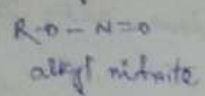 R-O-N=O
alkyl nitrite